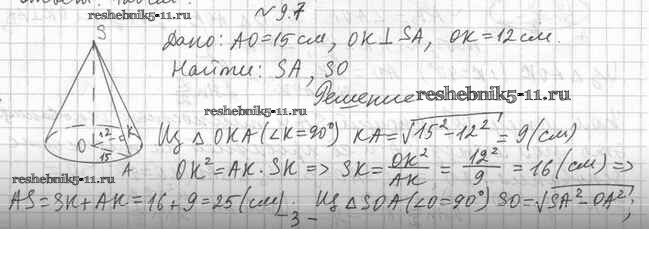 № 9.7
reshebnik5-11.by
S
Дано: AO=15см, OK⊥SA, OK=12см.
Найти: SA, SO
reshebnik5-11.by
Решение reshebnik5-11.by
reshebnik5-11.by
12 K
O
15
A
Из △OKA (∠K=90°) KA=√15²-12² = 9 (см)
OK²=AK·SK => SK= OK²/AK = 12²/9 = 16 (см) =>
reshebnik5-11.by
AS=SK+AK=16+9=25 (см). Из △SOA (∠O=90°) SO=√SA²-OA²;
- 3 -